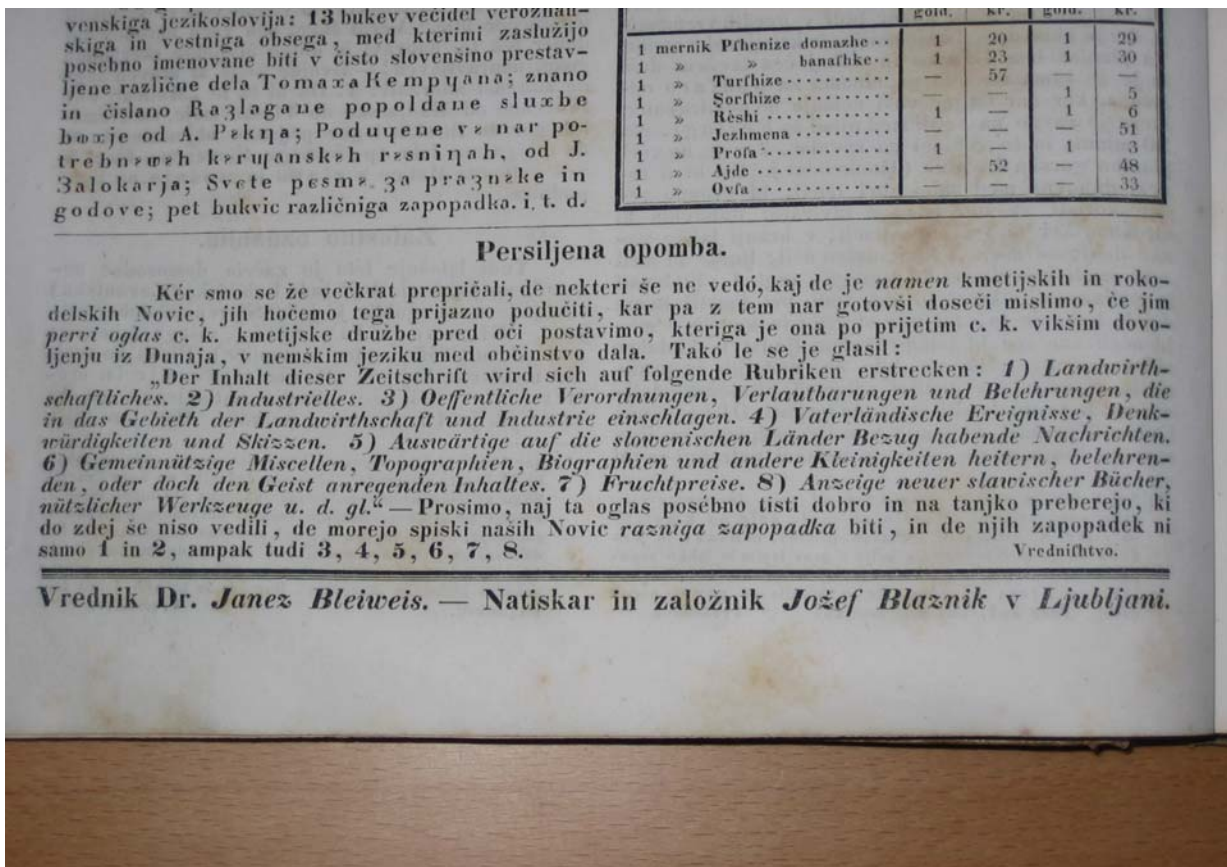 venskiga jezikoslovija: 13 bukev večidel veroznan-
skiga in vestniga obsega, med kterimi zaslužijo
posebno imenovane biti v čisto slovenšino prestav-
ljene različne dela Tomaxa Kempyana; znano
in čislano Raʒlagane popoldane sluxbe
od A. Poduyene nar po-
od J.
Ʒalokarja; Svete in
godove; pet bukvic različniga zapopadka. i. t. d.
gold. kr. gold. kr.
1 mernik Pſhenize domazhe ·· 1 20 1 29
1 » » banaſhke ·· 1 23 1 30
1 » Turſhize ············ — 57 — —
1 » Sorſhize ············ — — 1 5
1 » Rèshi ············ 1 — 1 6
1 » Jezhmena ············ — — — 51
1 » Proſa ············ 1 — 1 3
1 » Ajde ············ — 52 — 48
1 » Ovſa ············ — — — 33
Persiljena opomba.
Kér smo se že večkrat prepričali, de nekteri še ne vedó, kaj de je namen kmetijskih in roko-
delskih Novic, jih hočemo tega prijazno podučiti, kar pa z tem nar gotovši doseči mislimo, če jim
pervi oglas c. k. kmetijske družbe pred oči postavimo, kteriga je ona po prijetim c. k. vikšim dovo-
ljenju iz Dunaja, v nemškim jeziku med občinstvo dala. Takó le se je glasil:
„Der Inhalt dieser Zeitschrift wird sich auf folgende Rubriken erstrecken: 1) Landwirth-
schaftliches. 2) Industrielles. 3) Oeffentliche Verordnungen, Verlautbarungen und Belehrungen, die
in das Gebieth der Landwirthschaft und Industrie einschlagen. 4) Vaterländische Ereignisse, Denk-
würdigkeiten und Skizzen. 5) Auswärtige auf die slowenischen Länder Bezug habende Nachrichten.
6) Gemeinnützige Miscellen, Topographien, Biographien und andere Kleinigkeiten heitern, belehren-
den, oder doch den Geist anregenden Inhaltes. 7) Fruchtpreise. 8) Anzeige neuer slawischer Bücher,
nützlicher Werkzeuge u. d. gl.“ — Prosimo, naj ta oglas posébno tisti dobro in na tanjko preberejo, ki
do zdej še niso vedili, de morejo spiski naših Novic razniga zapopadka biti, in de njih zapopadek ni
samo 1 in 2, ampak tudi 3, 4, 5, 6, 7, 8.
Vredniſhtvo.
Vrednik Dr. Janez Bleiweis. — Natiskar in založnik Jožef Blaznik v Ljubljani.